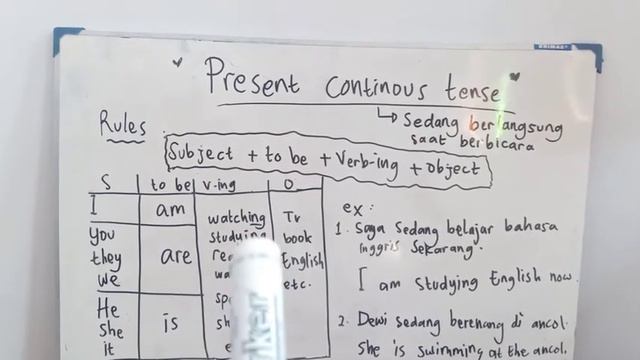 " Present continous tense "
Sedang berlangsung
saat berbicara
Rules
Subject + to be + Verb-ing + Object
S to be V-ing O
I am
You
they are
we
He
she is
it
watching Tv
studying book
English
etc.
ex:
1. Saya Sedang belajar bahasa
inggris Sekarang.
I am studying English now.
2. Dewi sedang berenang di ancol.
she is swimming at the ancol.